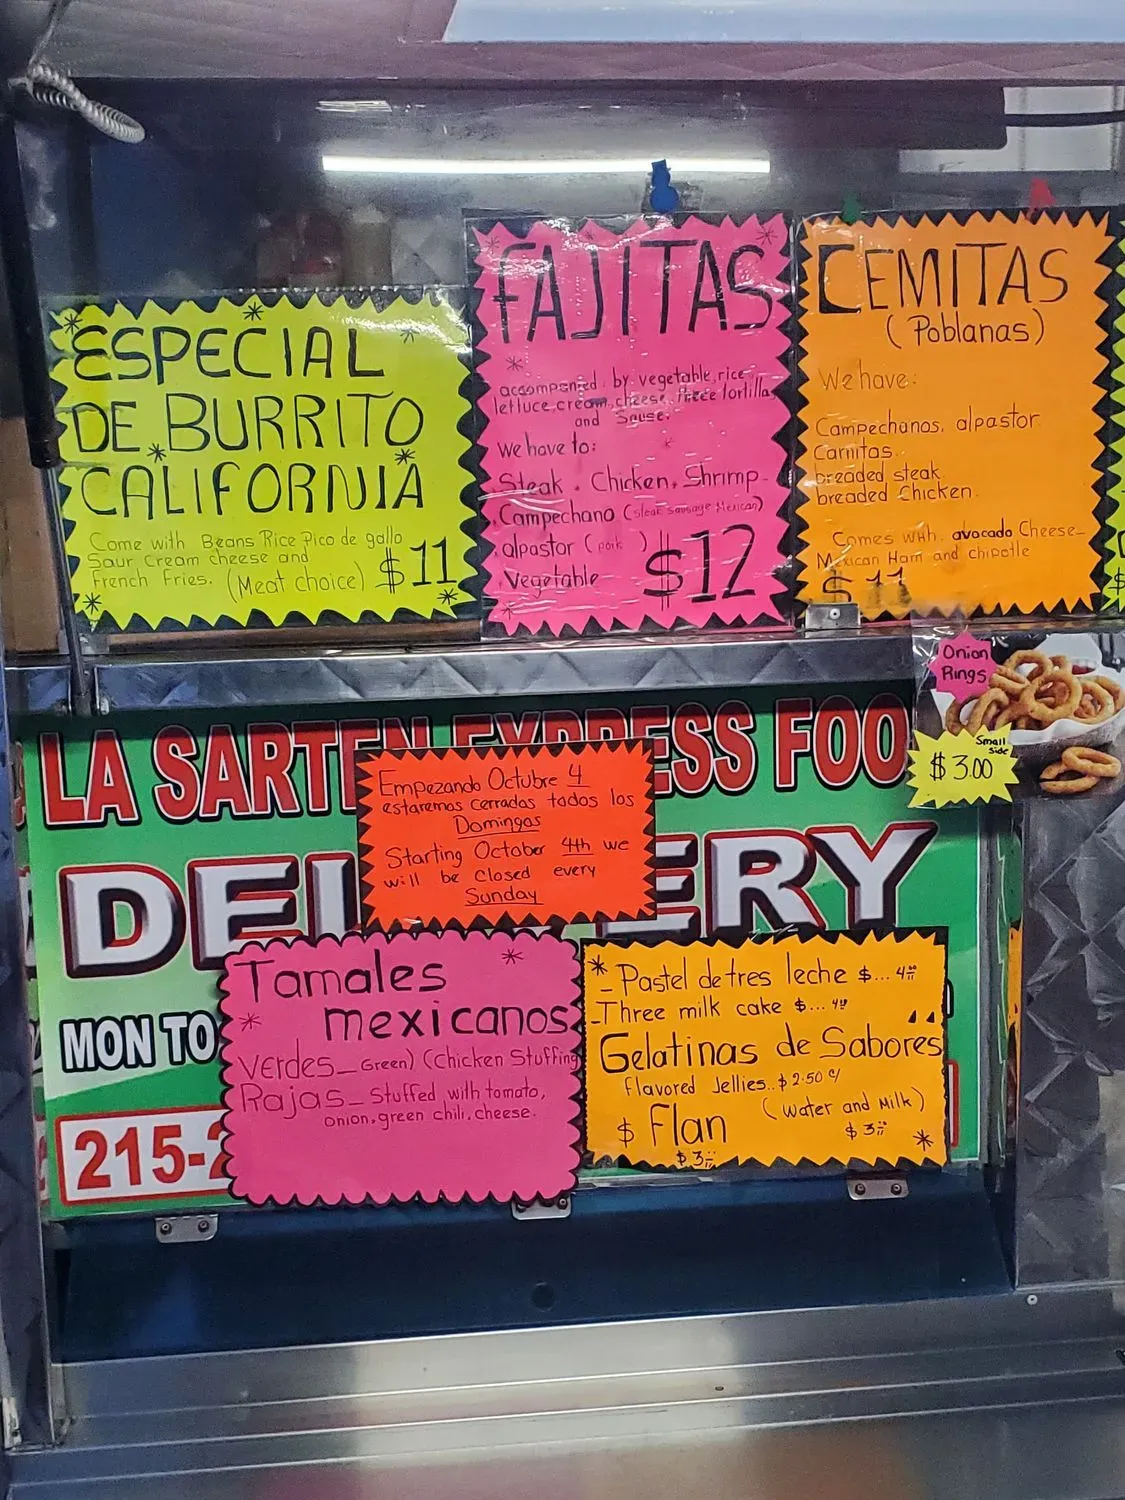 ESPECIAL
DE BURRITO
CALIFORNIA
Come with Beans Rice Pico de gallo
Sour Cream cheese and
French Fries. (Meat choice) $11
FAJITAS
accompanied by vegetable, rice
lettuce, cream, cheese, three tortillas
and Sause.
We have to:
Steak. Chicken. Shrimp-
Campechano (steak sausage Mexican)
alpastor (pork)
Vegetable
$12
CEMITAS
(Poblanas)
We have:
Campechanos. alpastor
Carnitas.
breaded steak
breaded Chicken.
Comes with avocado Cheese-
Mexican Ham and chipotle
$11
Onion
Rings
Small
side
$3.00
LA SARTEN EXPRESS FOO
Empezando Octubre 4
estaremos cerrados todos los
Domingos
Starting October 4th we
will be closed every
Sunday
DEL ERY
MON TO
215-2
Tamales
mexicanos
Verdes_ Green) (Chicken Stuffing
Rajas_ Stuffed with tomato,
onion, green chili, cheese.
- Pastel de tres leche $... 4.00
-Three milk cake $... 4.00
Gelatinas de Sabores
flavored Jellies..$2.50 c/
(Water and Milk)
$ Flan $3.00
$3.00